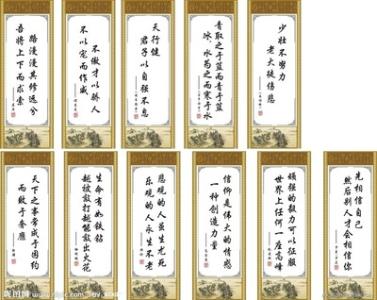 路漫漫其修远兮
吾将上下而求索
不傲才以骄人
不以宠而作威
天行健
君子以自强不息
青取之于蓝而青于蓝
冰水为之而寒于水
少壮不努力
老大徒伤悲
天下之事常成于困约
而败于奢靡
生命有如铁砧
越被敲打越能敲出火花
悲观的人虽生尤死
乐观的人永生不老
信仰是伟大的情感
一种创造力量
顽强的毅力可以征服
世界上任何一座高峰
先相信自己
然后别人才会相信你
昵图网